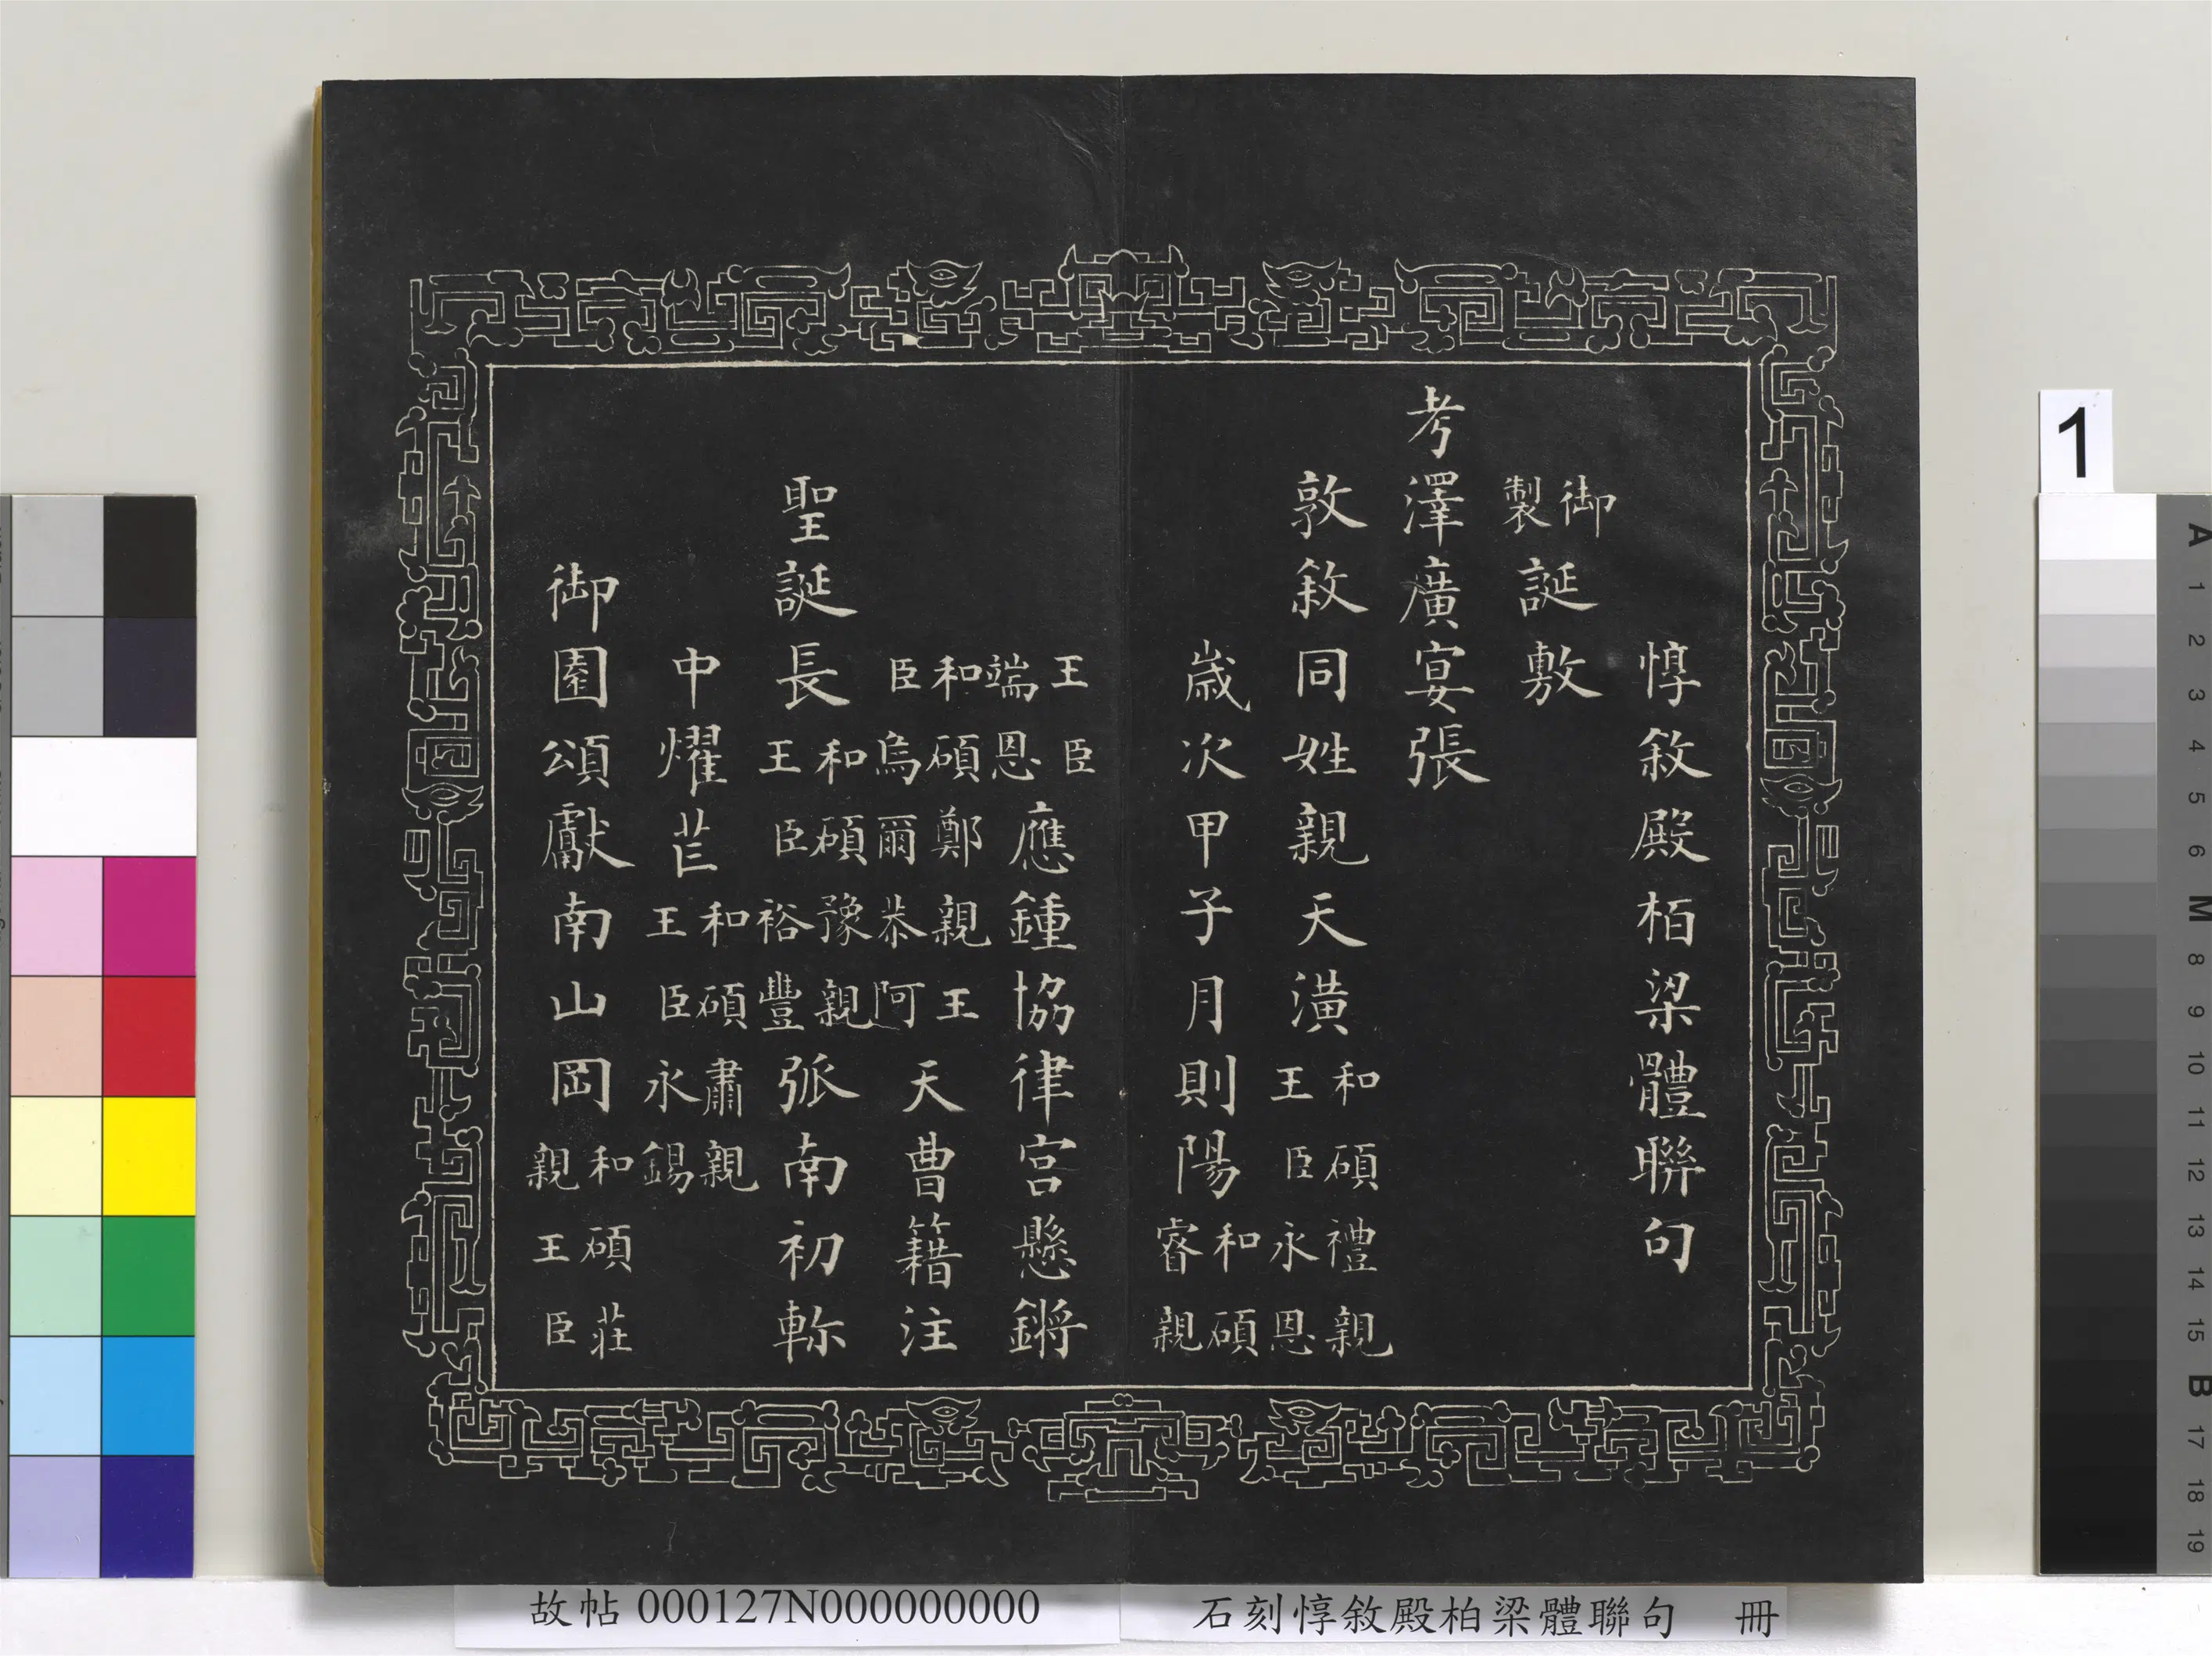 惇敘殿栢梁體聯句
御製誕敷
考澤廣宴張
敦敘同姓親天潢和碩禮親王臣永恩
歳次甲子月則陽和碩睿親
王臣端恩應鍾協律宮懸鏘
和碩鄭親王臣烏爾恭阿天曹籍注
聖誕長和碩豫親王臣裕豐弧南初軫
中燿芒和碩肅親王臣永錫
御園頌獻南山岡和碩莊親王臣
故帖 000127N000000000
石刻惇敘殿柏梁體聯句 冊
1
A 1 2 3 4 5 6 M 8 9 10 11 12 13 14 15 B 17 18 19